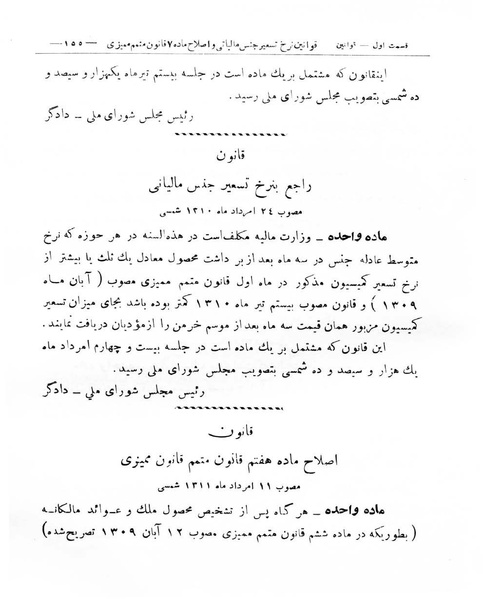 قسمت اول — قوانین قوانین نرخ تسعیر جنس مالیاتی و اصلاح ماده ۷ قانون متمم ممیزی — ۱۵۵ —
اینقانون که مشتمل بر یک ماده است در جلسه بیستم تیر ماه یکهزار و سیصد و
ده شمسی بتصویب مجلس شورای ملی رسید.
رئیس مجلس شورای ملی — دادگر
قانون
راجع بنرخ تسعیر جنس مالیاتی
مصوب ۲۴ امرداد ماه ۱۳۱۰ شمسی
ماده واحده — وزارت مالیه مکلف است در هذه السنه در هر حوزه که نرخ
متوسط عادله جنس در سه ماه بعد از بر داشت محصول معادل یک ثلث یا بیشتر از
نرخ تسعیر کمیسیون مذکور در ماه اول قانون متمم ممیزی مصوب ( آبان ماه
۱۳۰۹ ) و قانون مصوب بیستم تیر ماه ۱۳۱۰ کمتر بوده باشد بجای میزان تسعیر
کمیسیون مزبور همان قیمت سه ماه بعد از موسم خرمن را از مؤدیان دریافت نمایند.
این قانون که مشتمل بر یک ماده است در جلسه بیست و چهارم امرداد ماه
یک هزار و سیصد و ده شمسی بتصویب مجلس شورای ملی رسید.
رئیس مجلس شورای ملی — دادگر
قانون
اصلاح ماده هفتم قانون متمم قانون ممیزی
مصوب ۱۱ امرداد ماه ۱۳۱۱ شمسی
ماده واحده — هر گاه پس از تشخیص محصول ملک و عوائد مالکانه
( بطوریکه در ماده ششم قانون متمم ممیزی مصوب ۱۲ آبان ۱۳۰۹ تصریح شده )